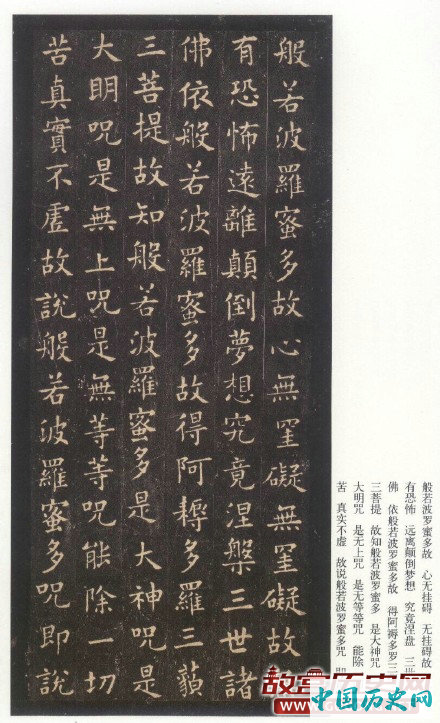 般若波羅蜜多故心無罣礙無罣礙故
有恐怖遠離顛倒夢想究竟涅槃三世諸
佛依般若波羅蜜多故得阿耨多羅三藐
三菩提故知般若波羅蜜多是大神咒是
大明咒是無上咒是無等等咒能除一切
苦真實不虛故說般若波羅蜜多咒即說
般若波罗蜜多故 心无挂碍 无挂碍故
有恐怖 远离颠倒梦想 究竟涅盘 三
佛 依般若波罗蜜多故 得阿耨多罗三
三菩提 故知般若波罗蜜多 是大神咒
大明咒 是无上咒 是无等等咒 能除
苦 真实不虚 故说般若波罗蜜多咒
中国历史网